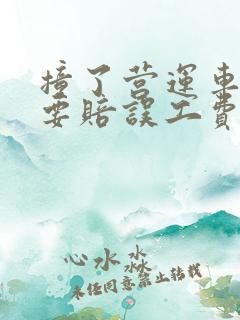 撞了营运车
要赔误工费
心水
淼
未经同意禁止转载